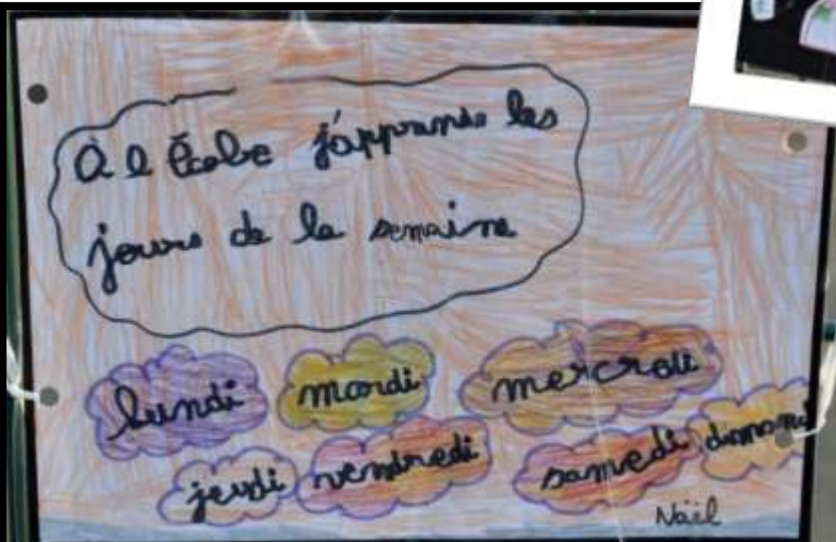 À l École j'apprends les
jours de la semaine
lundi mardi mercredi
jeudi vendredi samedi
Naïl